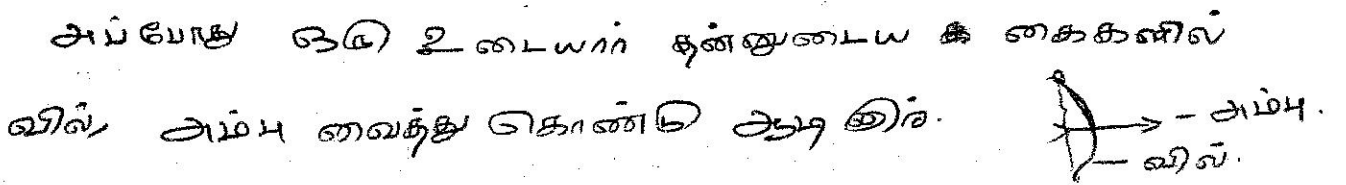 அப்போது ஒரு உடையார் தன்னுடைய கைகளில் 
வில், அம்பு வைத்து கொண்டு ஆடினார். - அம்பு.
- வில்.